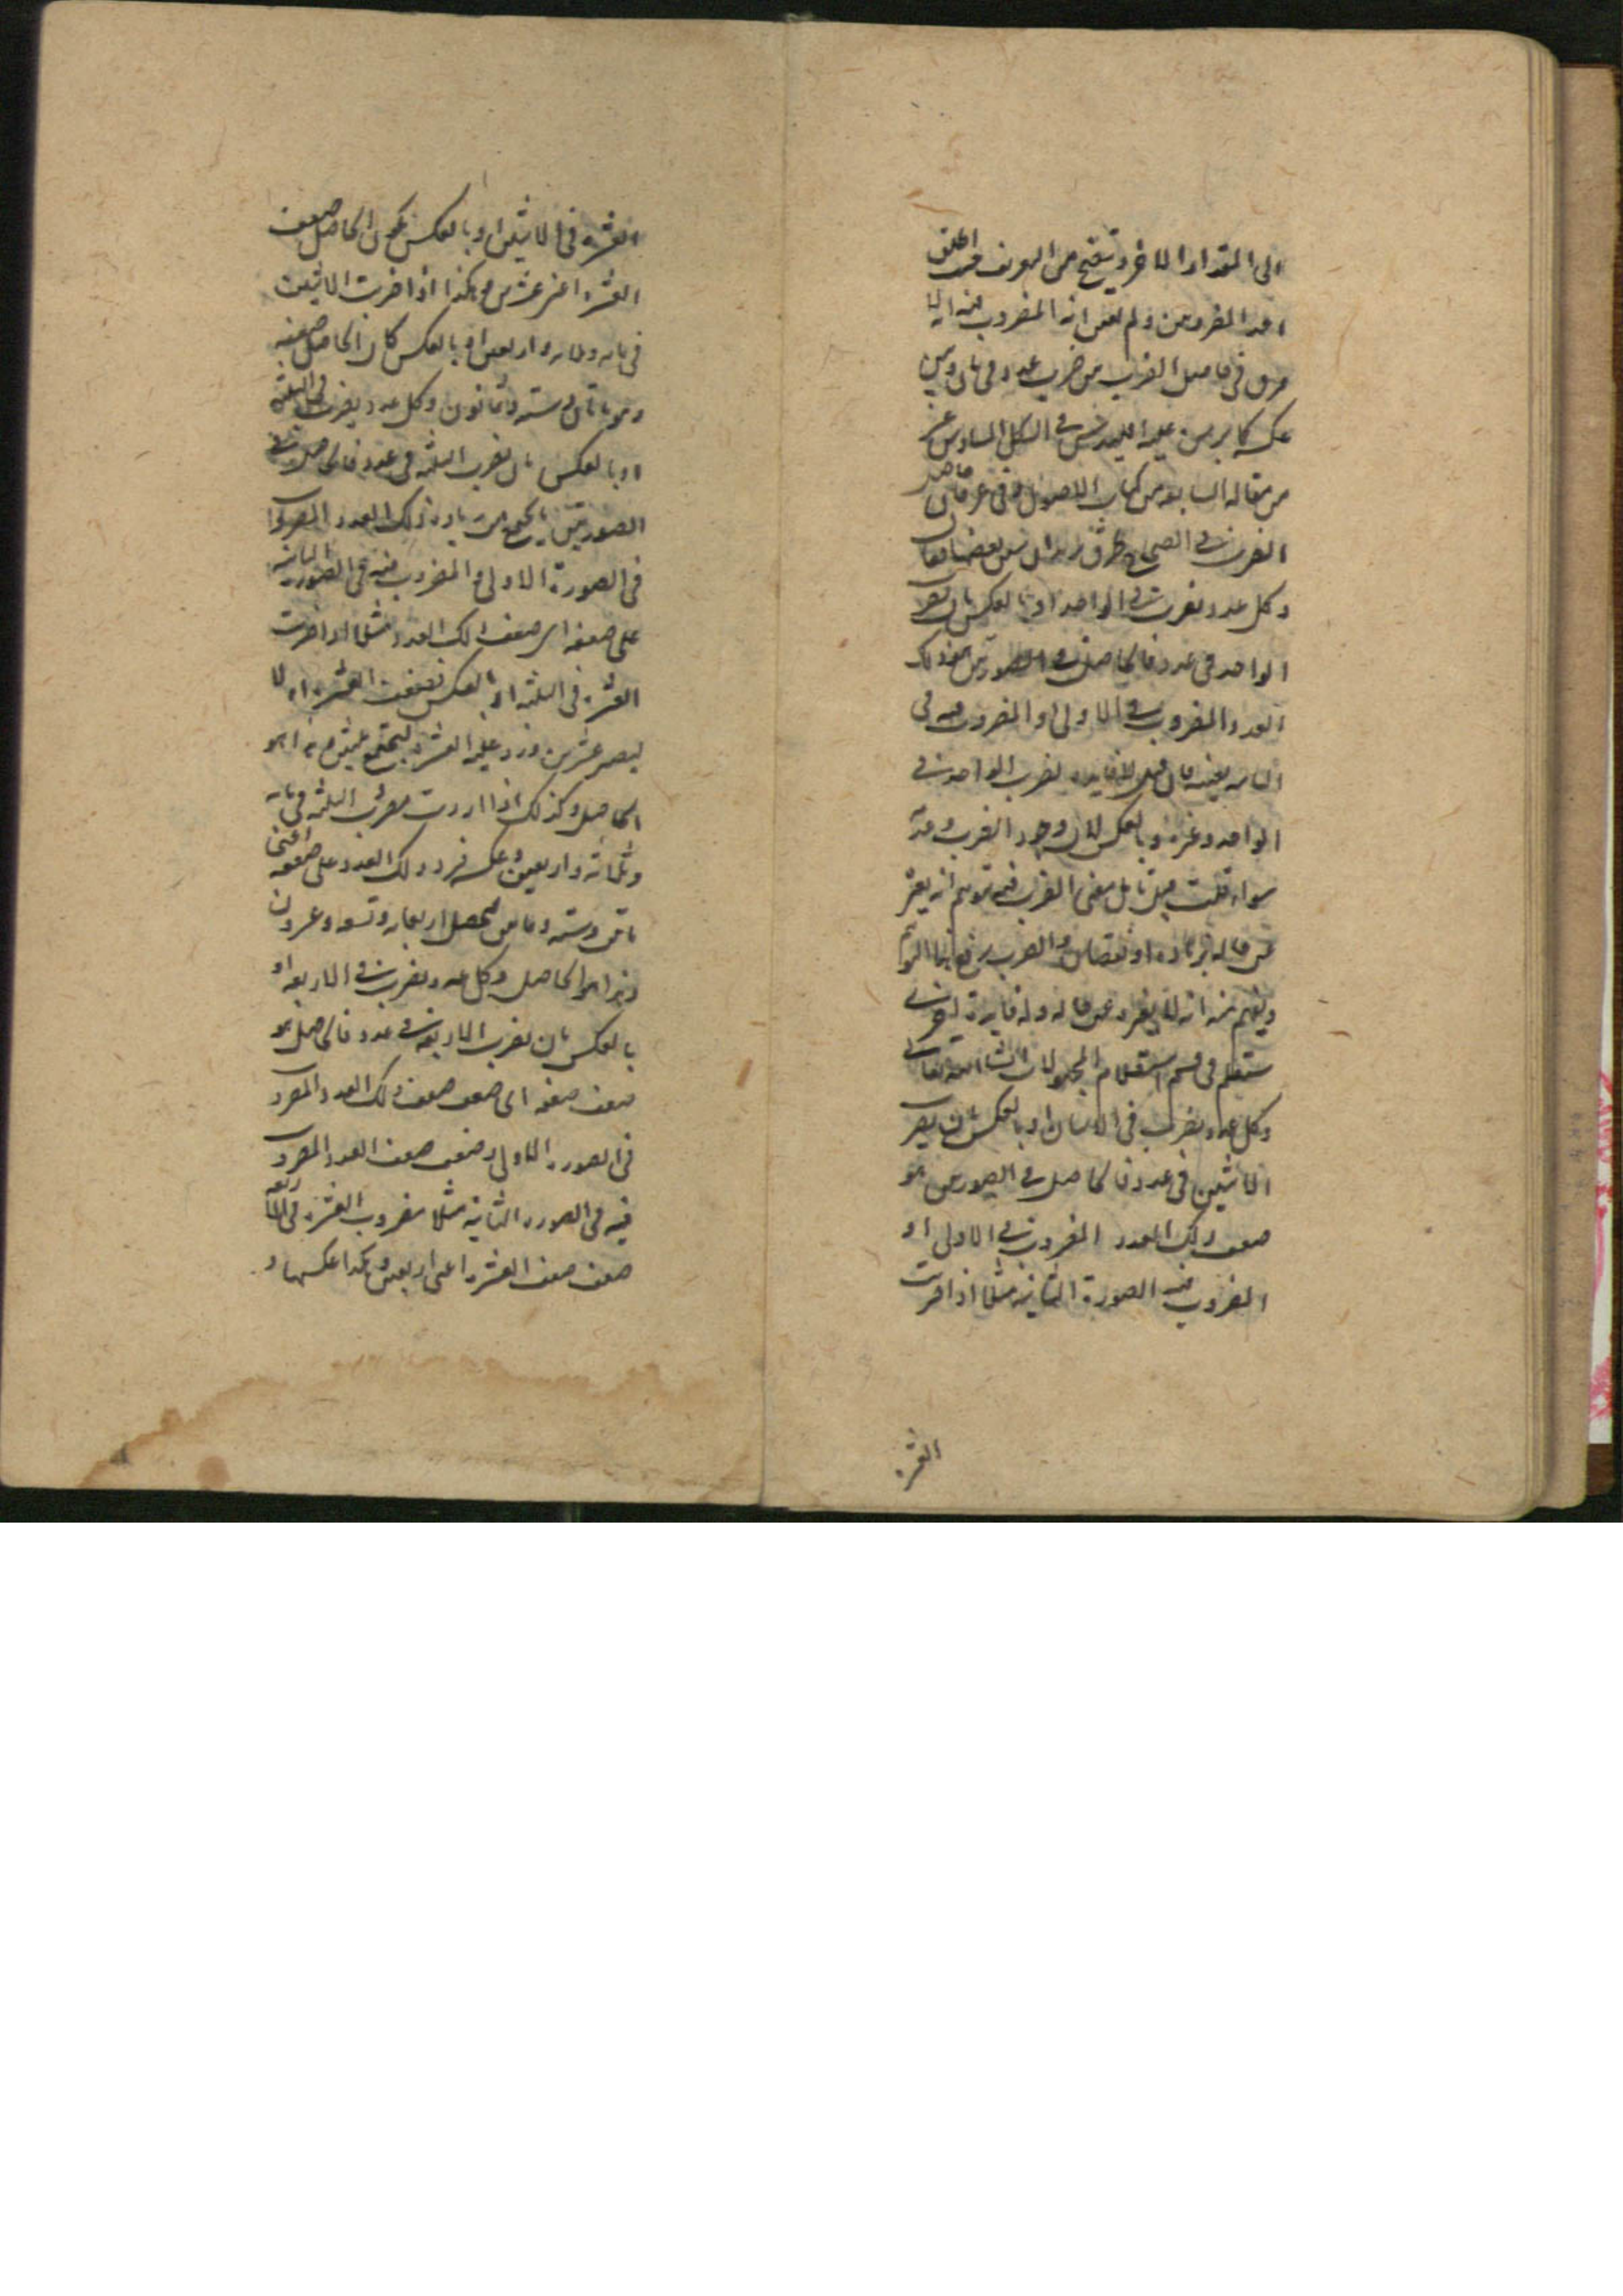 الى المقدار الاخر ويتضح من التعريف حيث اطلق
احد المضروبين ولم يعين انه المضروب فيه انه لا
فرق في حاصل الضرب من ضرب عدد في ثان وبين
عكسه كما برهن عليه اقليدس في الشكل السادس عشر
من مقاله السابعه من كتاب الاصول وفى
الضرب في الصحاح
وكل عدد يضرب في الواحد او بالعكس بان يضرب
الواحد في عدد فالحاصل في الصورتين هو ذلك
العدد المضروب في الاولى او المضروب فيه في
الثانيه بعينه فان قيل لا فايده لضرب الواحد في
الواحد وغيره وبالعكس لان وجود الضرب وعدمه
سواء قلت قبل تامل معنى الضرب فيه توهم انه يغير
عن حاله بزياده او نقصان والضرب يرفع هذا التوهم
ويفهم منه انه لا يغير عن حاله وله فايدة اخرى
ستعلم في قسم استعلام المجهولات ان شا الله تعالى
وكل عدد يضرب في الاثنان او بالعكس بان يضرب
الاثنين في عدد فالحاصل في الصورتين هو
ضعف ذلك العدد المضروب في الاولى او
المضروب فيه الصورة الثانيه مثلا اذا ضربت
العشره
العشره في الاثنين او بالعكس يكون الحاصل ضعف
العشره اعنى عشرين وهكذا اذا ضربت الاثنين
في مايه وثلاثه واربعين او بالعكس كان الحاصل ضعفه
وهو ماتان وسته وثمانون وكل عدد يضرب في الثلثه
او بالعكس بان يضرب الثلثه في عدد فالحاصل في
الصورتين ما يجتمع من زيادة ذلك العدد المضروب
في الصورة الاولى والمضروب فيه في الصورة الثانيه
على ضعفه اى ضعف ذلك العدد مثلا اذا ضربت
العشره في الثلثه او بالعكس تضعف العشره اولا
ليصير عشرين وزد عليه العشره ليجتمع ثلثون وهو
الحاصل وكذلك اذا اردت ضرب الثلثه في مايه
وثلاثه واربعين وعكسه فزد ذلك العدد على ضعفه اعنى
ماتين وسته وثمانين ليحصل اربعمايه وتسعه وعشرون
وهذا هو الحاصل وكل عدد يضرب في الاربعه او
بالعكس بان يضرب الاربعه في عدد فالحاصل هو
ضعف ضعفه اى ضعف ضعف ذلك العدد المضروب
في الصورة الاولى وضعف ضعف العدد المضروب
فيه في الصورة الثانيه مثلا مضروب العشره في الاربعه
ضعف ضعف العشره اعنى اربعين وهكذا عكسها و